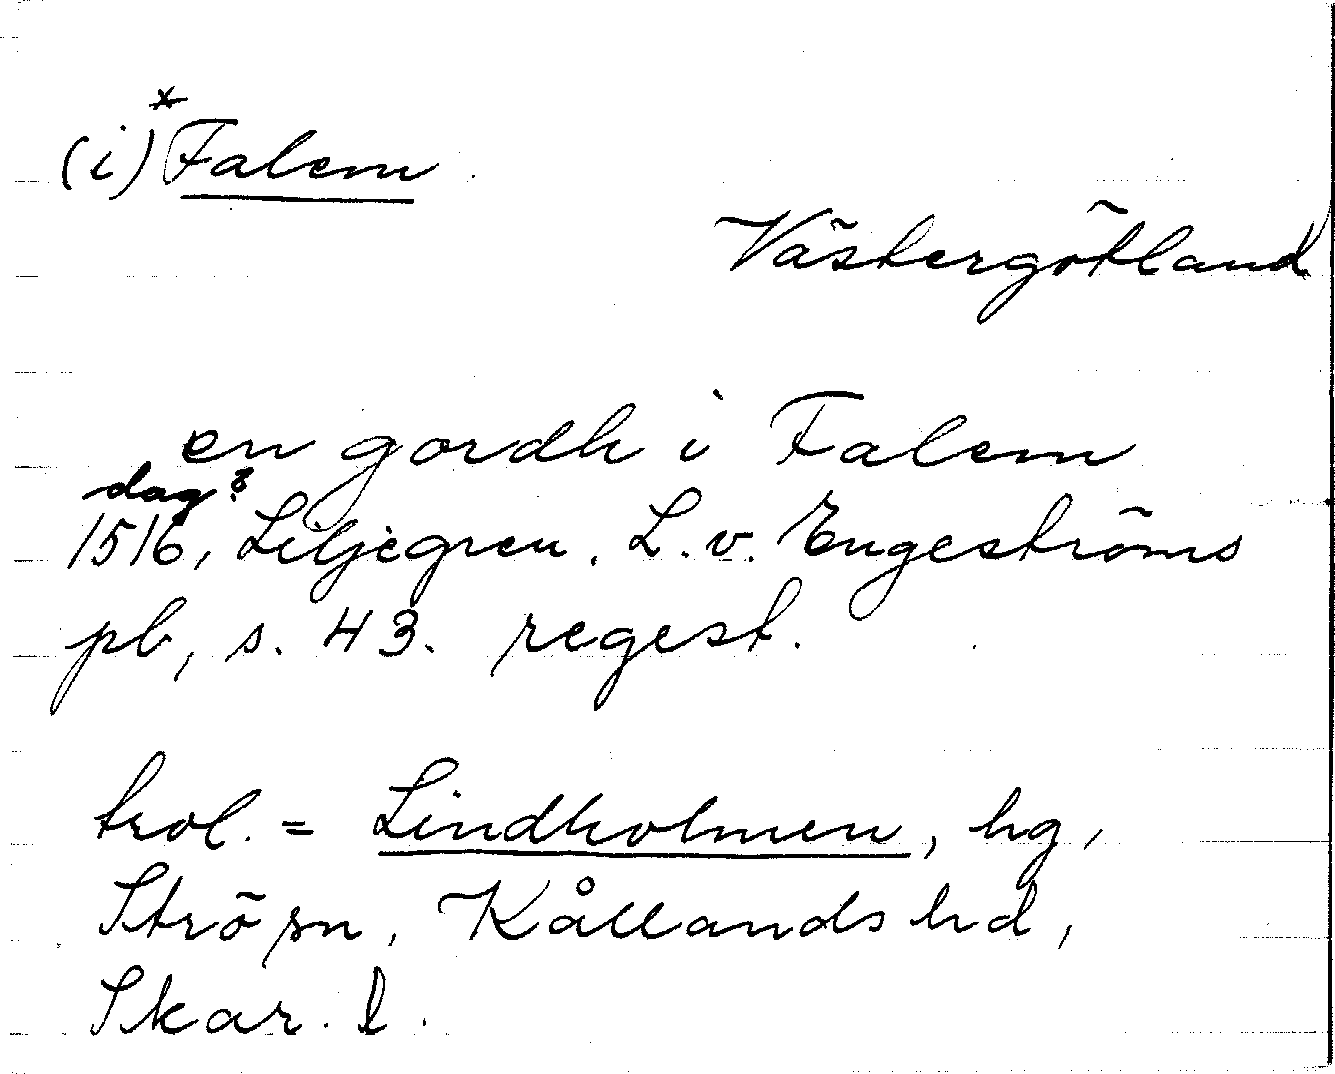 (i) *Falem
Västergötland
en gordh i Falem
dag?
1516, Liljegren. L. v. Engeströms
pb, s. 43. regest.
trol. = Lindholmen, hg,
Strö sn, Kållands hd,
Skar. l.